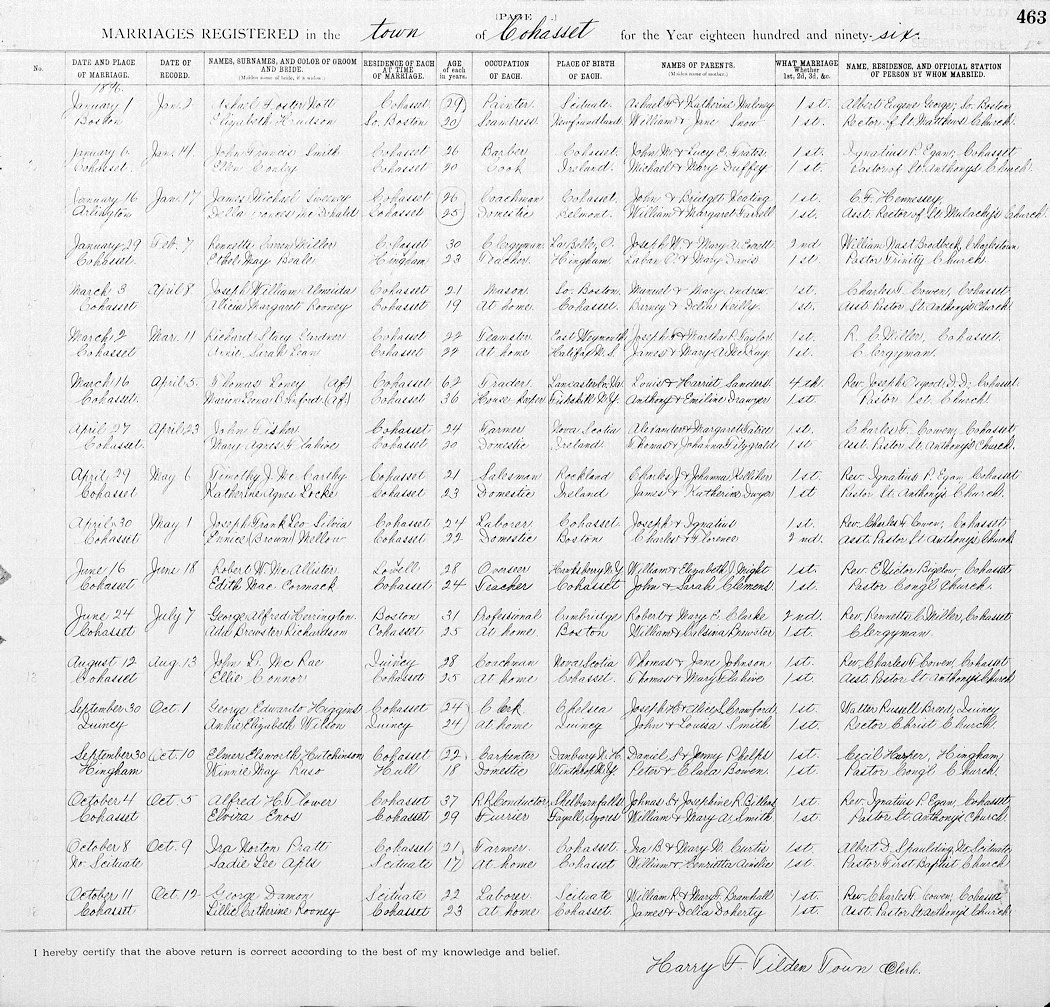 [PAGE .] 463
MARRIAGES REGISTERED in the town of Cohasset for the Year eighteen hundred and ninety-six.
No. DATE AND PLACE OF MARRIAGE. DATE OF RECORD. NAMES, SURNAMES, AND COLOR OF GROOM AND BRIDE. (Maiden name of bride, if a widow.) RESIDENCE OF EACH AT TIME OF MARRIAGE. AGE of each in years. OCCUPATION OF EACH. PLACE OF BIRTH OF EACH. NAMES OF PARENTS. (Maiden name of mother.) WHAT MARRIAGE Whether 1st, 2d, 3d, &c. NAME, RESIDENCE, AND OFFICIAL STATION OF PERSON BY WHOM MARRIED.
1896.
January 1 Jan. 2 Foster Nott Cohasset 29 Painter Scituate & Katherine Maloney 1st. Albert Eugene George, So. Boston
Boston Elizabeth Hudson So. Boston 20 Seamstress Newfoundland William & Jane Snow 1st. Rector of St. Matthews Church.
January 6 Jan. 14 John Francis Smith Cohasset 26 Barber Cohasset. John M. & Lucy E. Frates 1st. Ignatius P. Egan, Cohasset
Cohasset. Ellen Conley Cohasset 20 Cook Ireland. Michael & Mary Duffey 1st. Pastor of St. Anthonys Church.
January 16 Jan. 17 James Michael Sweeney Cohasset 26 Coachman Cohasset. John & Bridgett Keating 1st. C. F. Hennessey,
Arlington Della Cohasset 25 Domestic Belmont. William & Margaret Farrell 1st. Asst. Rector of St. Malachy's Church.
January 29 Feb. 7 Rennetts Miller Cohasset 30 Clergyman La Belle, O. Joseph W. & Mary A. 2nd William Nast Brodbeck, Charlestown
Cohasset. Ethel May Beale Hingham 23 Teacher Hingham. Laban & Mary Davis 1st Pastor Trinity Church
March 3 April 8 Joseph William Almeida Cohasset 21 Mason So. Boston. Manuel & Mary Andrew. 1st. Charles F. Cowen, Cohasset
Cohasset Margaret Rooney Cohasset 19 At home Cohasset. Barney & Delia Reilly. 1st. Asst. Pastor St. Anthonys Church.
March 2 Mar. 11 Richard Stacy Gardner Cohasset 22 Teamster East Weymouth Joseph & Martha P. Taylor 1st. R. C. Miller, Cohasset.
Cohasset Annie Sarah Cohasset 22 At home Halifax N. S. James & Mary A. McKay 1st. Clergyman.
March 16 April 5. Thomas Loney (Af.) Cohasset 62 Trader Lancaster Co. Va. Louis & Harriet Sanders 4th. Rev. Joseph D.D., Cohasset
Cohasset. Marion (Af.) Cohasset 36 House keeper Fishskill N.Y. Anthony & Emiline 1st. Pastor 1st. Church.
April 27 April 23 John Fisher Cohasset 24 Farmer Nova Scotia Alexander & Margaret 1st. Charles F. Cowen, Cohasset
Cohasset. Mary Agnes Flahive Cohasset 20 Domestic Ireland. Thomas & Johanna Fitzgerald 1st. Asst. Pastor St. Anthonys Church.
April 29 May 6 Timothy J. Mc Carthy Cohasset 21 Salesman Rockland Charles J. & Johanna Kelliher 1st. Rev. Ignatius P. Egan, Cohasset
Cohasset Katherine Agnes Locke Cohasset 23 Domestic Ireland James & Katherine Dwyer 1st Pastor St. Anthonys Church.
April 30 May 1 Joseph Frank Leo Silvia Cohasset 24 Laborer Cohasset. Joseph & Ignatius 1st. Rev. Charles F. Cowen, Cohasset
Cohasset Eunice (Brown) Mellow Cohasset 22 Domestic Boston Charles & Florence 2nd. Asst. Pastor St. Anthonys Church
June 16 June 18 Robert W. Mc Allister Lowell 28 Overseer N.Y. William & Elizabeth J. Might 1st. Rev. E. Victor Bigelow, Cohasset
Cohasset Edith Mac Cormack Cohasset 24 Teacher Cohasset John & Sarah Clemens 1st. Pastor Congl. Church.
June 24 July 7 George Alfred Herrington Boston 31 Professional Cambridge Robert & Mary E. Clarke 2nd. Rev. Rennetts C. Miller, Cohasset
Cohasset Add Brewster Richardson Cohasset 25 At home Boston William & Brewster 1st. Clergyman.
August 12 Aug. 13 John D. Mc Rae Quincy 28 Coachman Nova Scotia Thomas & Jane Johnson 1st. Rev. Charles F. Cowen, Cohasset
Cohasset Ellie Connor Cohasset 25 At home Cohasset. Thomas & Mary Flahive 1st. Asst. Pastor St. Anthonys Church
September 30 Oct. 1 George Edwards Higgins Cohasset 24 Clerk Chelsea Joseph H. & Alice L. Crawford 1st. Walter Russell Breed, Quincy
Quincy Annie Elizabeth Wilson Quincy 24 At home Quincy John & Louisa Smith 1st. Rector Christ Church.
September 30 Oct. 10 Elmer Elsworth Hutchinson Cohasset 22 Carpenter Danbury N. H. Daniel D. & Jenny Phelps 1st. Cecil Harper, Hingham,
Hingham Winnie May Ruso Hull 18 Domestic Winthrop N.Y. Peter & Clara Bowen 1st. Pastor Congl Church.
October 4 Oct. 5 Alfred H. Flower Cohasset 37 R.R. Conductor Shelburn falls Johnas D. & Josephine R. Billins 1st. Rev. Ignatius P. Egan, Cohasset
Cohasset Elvira Enos Cohasset 29 Furrier Fayall, Azores William & Mary A. Smith. 1st. Pastor St. Anthonys Church.
October 8 Oct. 9 Ira Norton Pratt Cohasset 21 Farmer Cohasset. Ira B. & Mary N. Curtis 1st. Albert D. Spaulding No. Scituate
No Scituate Sadie Lee Apts Scituate 17 At home Cohasset William & Henrietta Ainslie 1st. Pastor First Baptist Church
October 11 Oct. 12 George Damon Scituate 22 Laborer Scituate William P. & Mary F. Bramhall 1st. Rev. Charles F. Cowen, Cohasset
Cohasset Lillie Catherine Rooney Cohasset 23 At home Cohasset. James & Delia Doherty 1st. Asst. Pastor St. Anthonys Church
I hereby certify that the above return is correct according to the best of my knowledge and belief.
Harry F. Tilden Town Clerk.